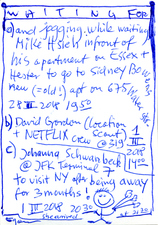 WAITING FOR
a) and jogging while waiting
Mike Hsieh in front of
his apartment on Essex +
Hester to go to Sidney
new (=old!) apt on 675
28 III 2018 1950
b) David Gordon (location
+ NETFLIX crew scout
@ 319
c) Johanna Schwanbeck 2018
@ JFK Terminal 7 1400
to visit NY after being away
for 3 months!
1 III 2018 2030